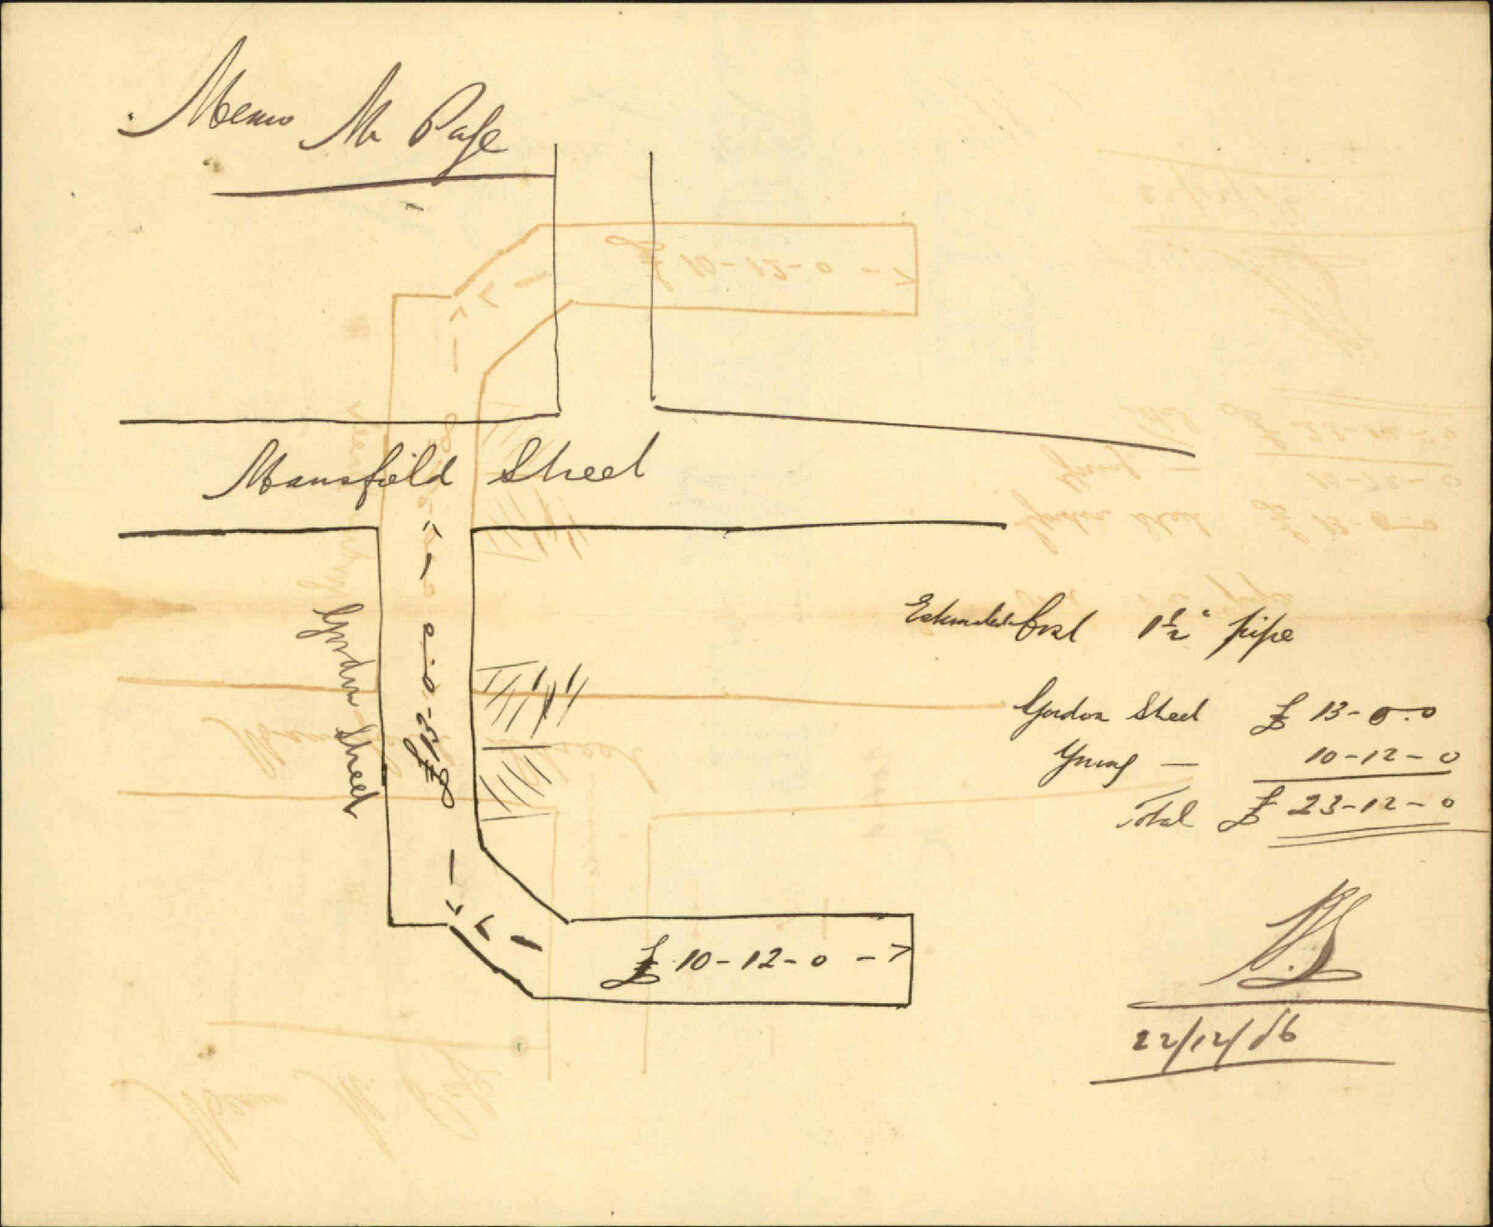 Memo Mr Page
Mansfield Street
Gordon Street
£13-0-0
£ 10-12-0
Estimated Cost 1½" pipe
Gordon Street £ 13-0-0
Young — 10-12-0
Total £ 23-12-0
22/12/16